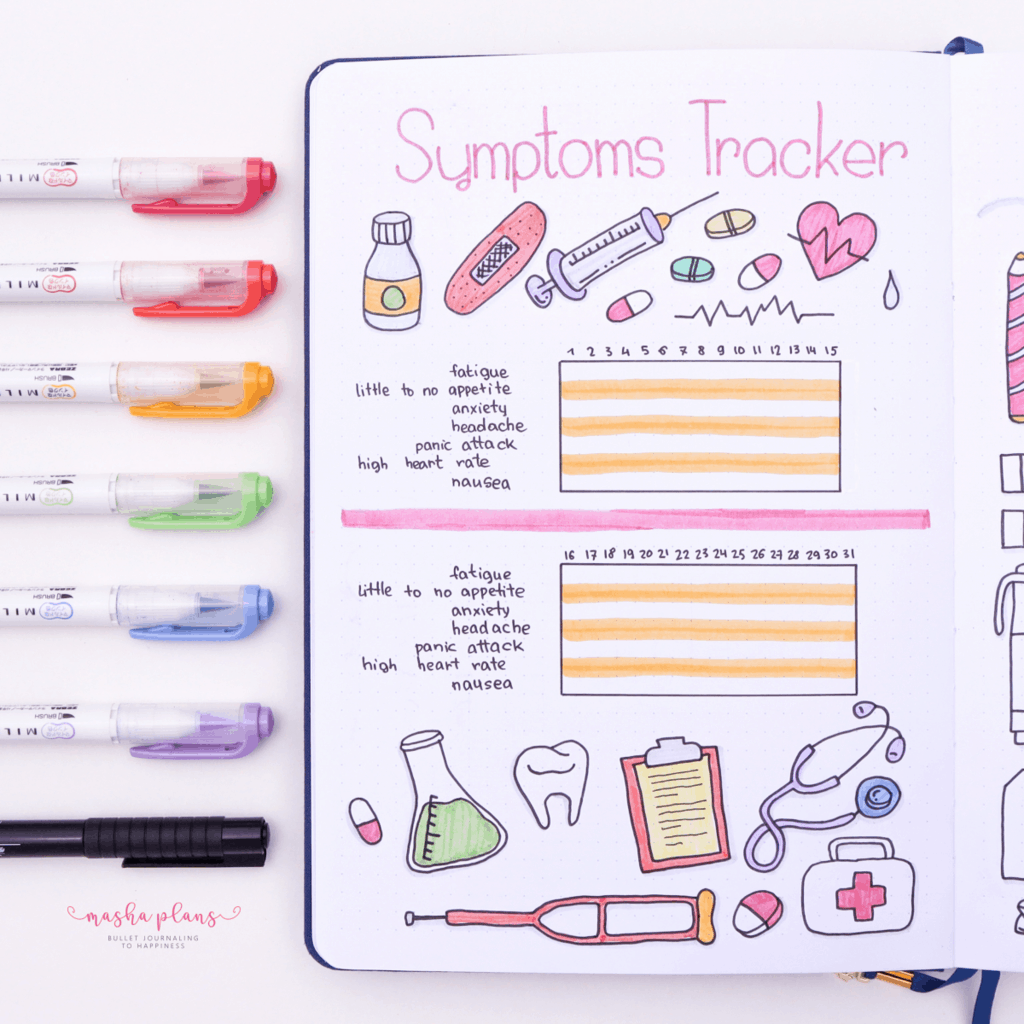 Symptoms Tracker
1 2 3 4 5 6 7 8 9 10 11 12 13 14 15
fatigue
little to no appetite
anxiety
headache
panic attack
high heart rate
nausea
16 17 18 19 20 21 22 23 24 25 26 27 28 29 30 31
fatigue
little to no appetite
anxiety
headache
panic attack
high heart rate
nausea
masha plans
BULLET JOURNALING
TO HAPPINESS
BRUSH
MIL
BRUSH
MIL
ZEBRA
BRUSH
MIL
BRUSH
MIL
BRUSH
MIL
BRUSH
MIL